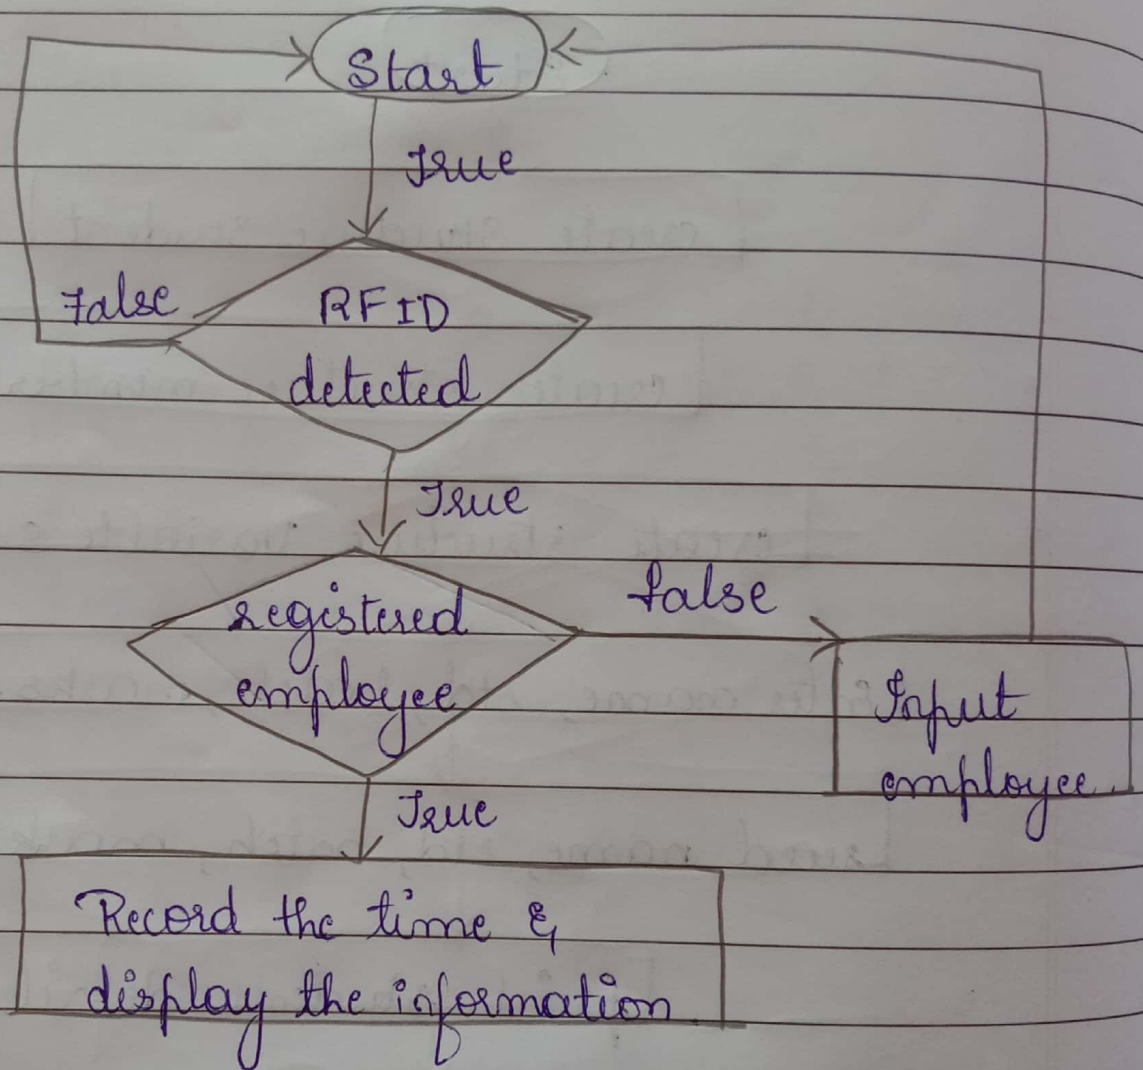 Start
True
False
RFID
detected
True
registered
employee
false
Input
employee.
True
Record the time &
display the information